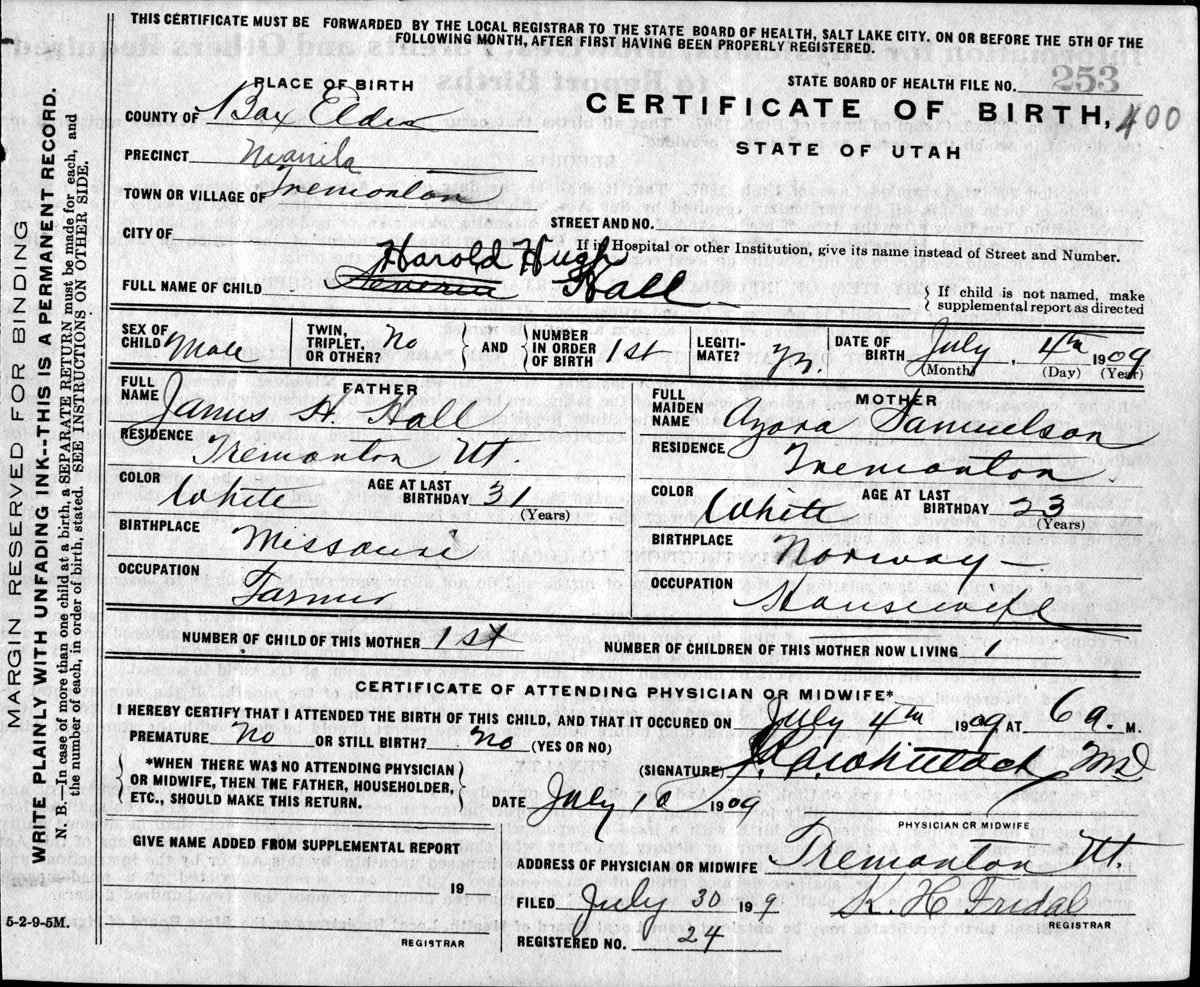 THIS CERTIFICATE MUST BE FORWARDED BY THE LOCAL REGISTRAR TO THE STATE BOARD OF HEALTH, SALT LAKE CITY, ON OR BEFORE THE 5TH OF THE
FOLLOWING MONTH, AFTER FIRST HAVING BEEN PROPERLY REGISTERED.
MARGIN RESERVED FOR BINDING
WRITE PLAINLY WITH UNFADING INK--THIS IS A PERMANENT RECORD.
N. B.—In case of more than one child at a birth, a SEPARATE RETURN must be made for each, and
the number of each, in order of birth, stated. SEE INSTRUCTIONS ON OTHER SIDE.
PLACE OF BIRTH
STATE BOARD OF HEALTH FILE NO. 253
COUNTY OF Box Elder
CERTIFICATE OF BIRTH, 400
STATE OF UTAH
PRECINCT Manila
TOWN OR VILLAGE OF Tremonton
STREET AND NO.
CITY OF
If in Hospital or other Institution, give its name instead of Street and Number.
Harold Hugh
FULL NAME OF CHILD Hall
If child is not named, make
supplemental report as directed
SEX OF CHILD Male
TWIN, TRIPLET, OR OTHER? No
AND
NUMBER IN ORDER OF BIRTH 1st
LEGITI-MATE?
DATE OF BIRTH July 4th 1909
(Month) (Day) (Year)
FATHER
FULL NAME James H. Hall
RESIDENCE Tremonton Ut.
COLOR White AGE AT LAST BIRTHDAY 31
(Years)
BIRTHPLACE Missouri
OCCUPATION Farmer
MOTHER
FULL MAIDEN NAME Azora Samuelson
RESIDENCE Tremonton
COLOR White AGE AT LAST BIRTHDAY 23
(Years)
BIRTHPLACE Norway
OCCUPATION Housewife
NUMBER OF CHILD OF THIS MOTHER 1st NUMBER OF CHILDREN OF THIS MOTHER NOW LIVING 1
CERTIFICATE OF ATTENDING PHYSICIAN OR MIDWIFE*
I HEREBY CERTIFY THAT I ATTENDED THE BIRTH OF THIS CHILD, AND THAT IT OCCURED ON July 4th 1909 AT 6 a. M.
PREMATURE No OR STILL BIRTH? No (YES OR NO)
*WHEN THERE WAS NO ATTENDING PHYSICIAN
OR MIDWIFE, THEN THE FATHER, HOUSEHOLDER,
ETC., SHOULD MAKE THIS RETURN.
(SIGNATURE) MD
DATE July 10 1909
PHYSICIAN OR MIDWIFE
GIVE NAME ADDED FROM SUPPLEMENTAL REPORT
19
REGISTRAR
ADDRESS OF PHYSICIAN OR MIDWIFE Tremonton Ut.
FILED July 30 1909
REGISTRAR
REGISTERED NO. 24
5-2-9-5M.